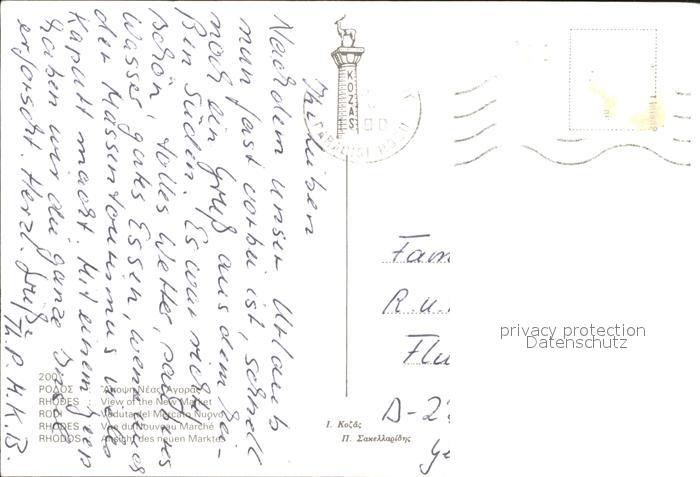 Ihr Lieben
Nachdem unser Urlaub
nun fast vorbei ist, schnell
noch ein Gruß aus dem hei-
ßen Süden. Es war richtig
schön, tolles Wetter, sauberes
Wasser, gutes Essen, wenn auch
der Massentourismus vieles
kaputt macht. Mit einem Jeep
haben wir die ganze Insel
erforscht. Herzl. Grüße
Th. P. H. K. B.
KOZAS
200
ΡΟΔΟΣ : Ἄποψη Νέας Ἀγορᾶς
RHODES : View of the New Market
RODI : Veduta del Mercato Nuovo
RHODES : Vue du Nouveau Marché
RHODOS : Ansicht des neuen Marktes
Ι. Κοζᾶς
Π. Σακελλαρίδης
Fam
R. u.
Flu
D-2
privacy protection
Datenschutz